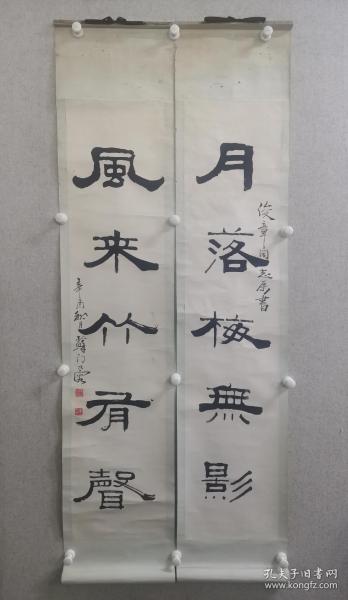 月落梅無影
俊章同志属書
風来竹有聲
辛酉秋月
孔夫子旧书网
kongfz.com